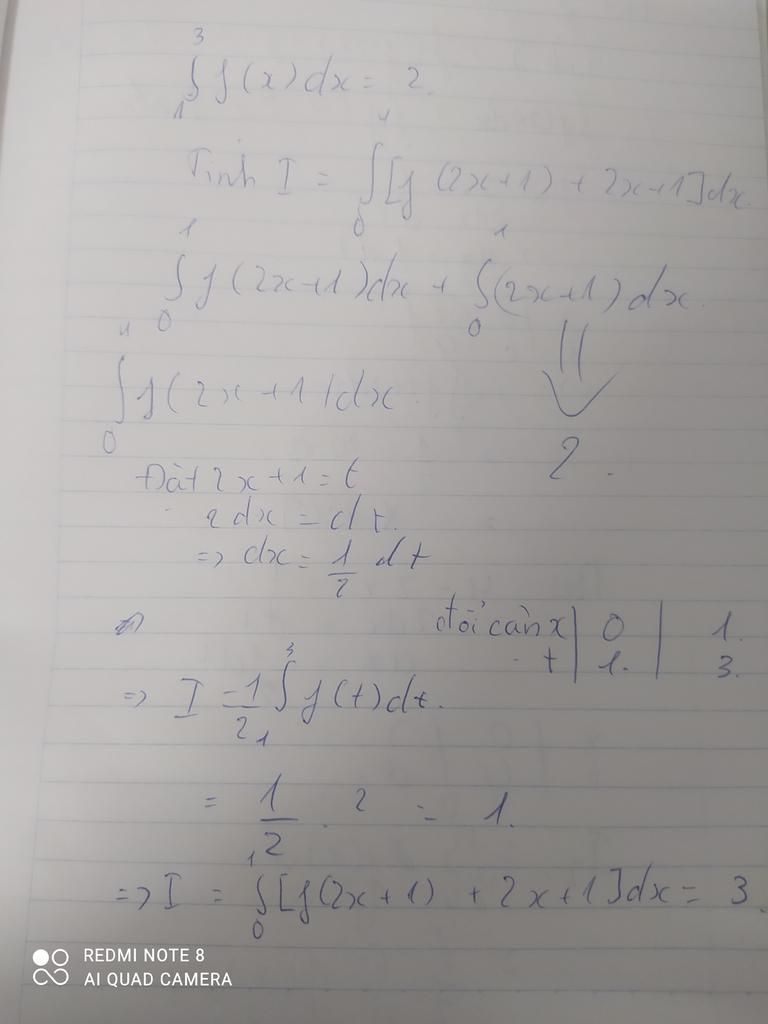 ∫₁³ f(x)dx = 2.
Tính I = ∫₀¹ [f(2x+1) + 2x+1]dx.
∫₀¹ f(2x+1)dx + ∫₀¹ (2x+1)dx.
∫₀¹ f(2x+1)dx ⇓
2.
Đặt 2x+1 = t
2dx = dt.
=> dx = 1/2 dt
đổi cận x | 0 | 1.
t | 1. | 3.
=> I = 1/2 ∫₁³ f(t)dt.
= 1/2 . 2 = 1.
=> I = ∫₀¹ [f(2x+1) + 2x+1]dx = 3.
REDMI NOTE 8
AI QUAD CAMERA